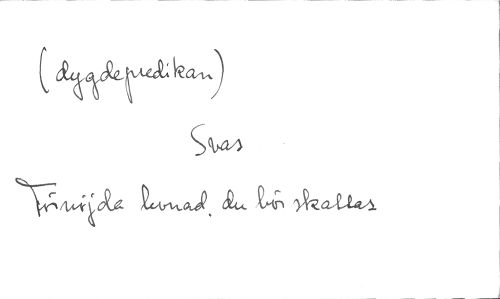 (dygdepredikan)
Svar
Förnöjda levnad, du bör skattas